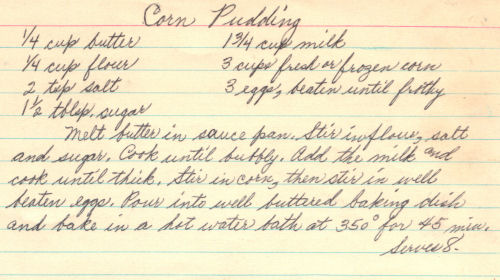 Corn Pudding
1/4 cup butter 1 3/4 cup milk
1/4 cup flour 3 cups fresh or frozen corn
2 tsp salt 3 eggs, beaten until frothy
1 1/2 tblsp. sugar
Melt butter in sauce pan. Stir in flour, salt
and sugar. Cook until bubbly. Add the milk and
cook until thick. Stir in corn, then stir in well
beaten eggs. Pour into well buttered baking dish
and bake in a hot water bath at 350° for 45 min.
Serves 8.